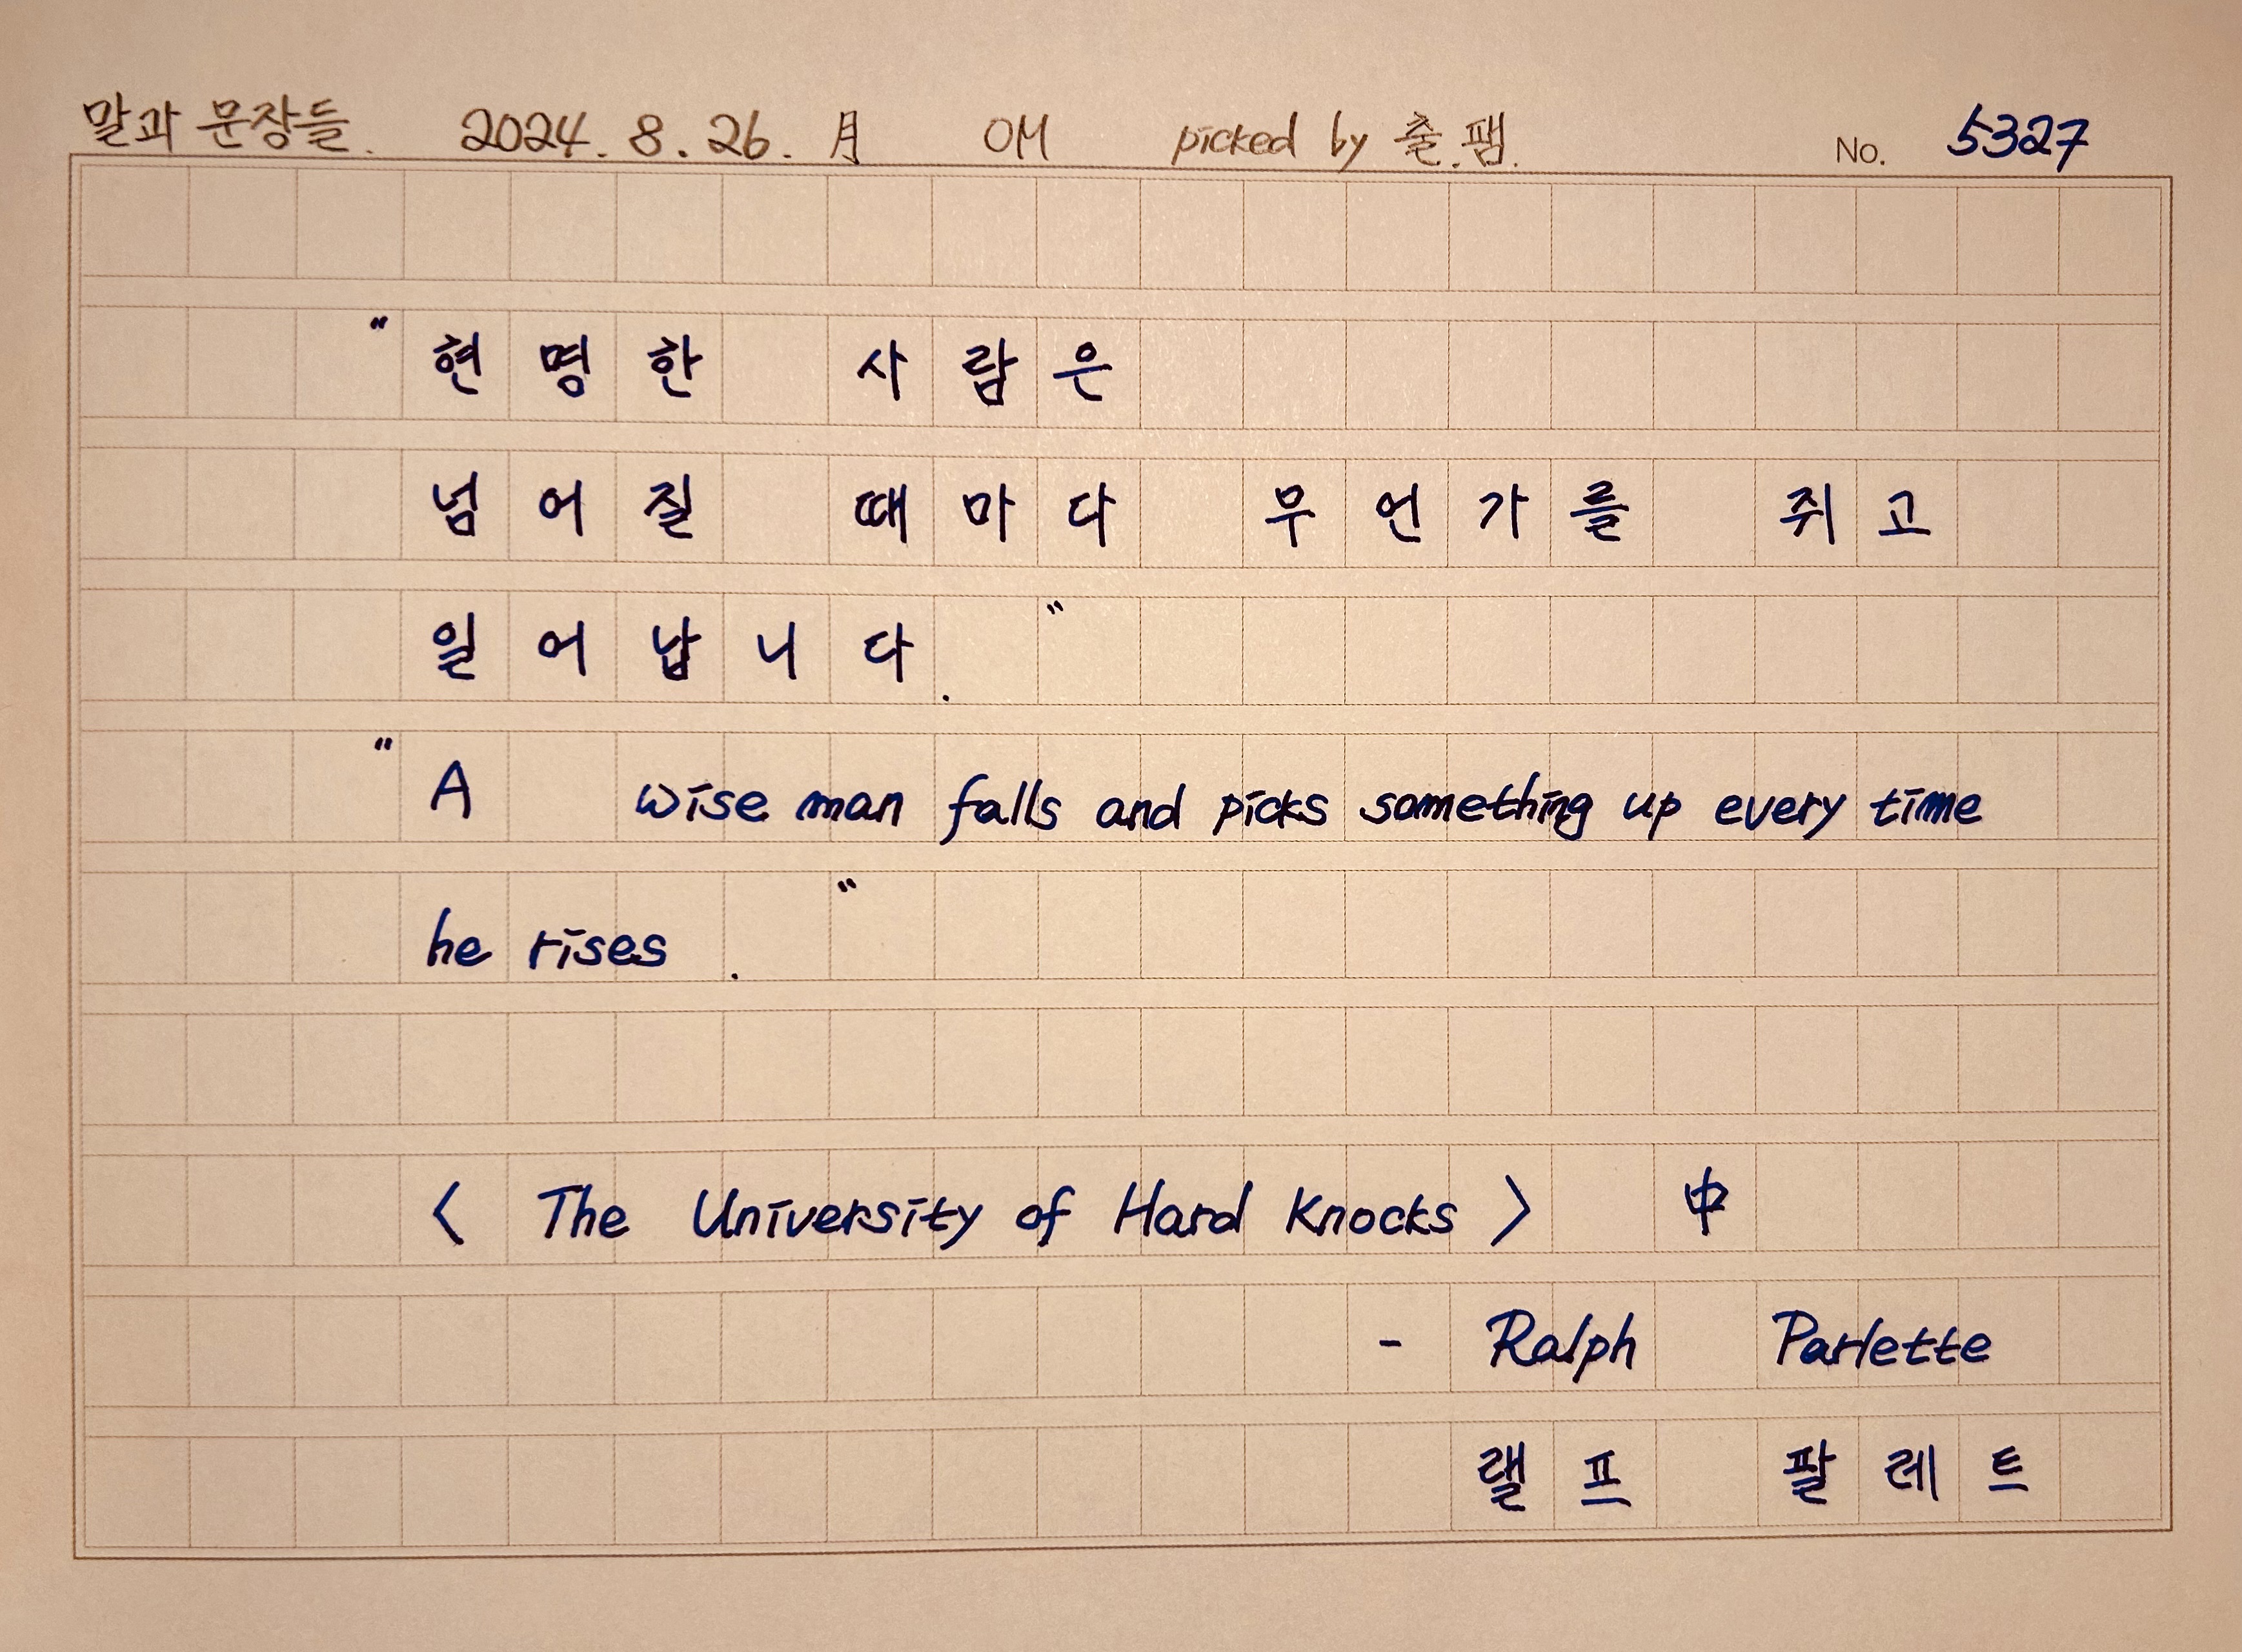 말과 문장들. 2024. 8. 26. 月 OM picked by 출.팸. No. 5327
"현명한 사람은
넘어질 때마다 무언가를 쥐고
일어납니다."
"A wise man falls and picks something up every time
he rises."
< The University of Hard Knocks > 中
- Ralph Parlette
랠프 팔레트